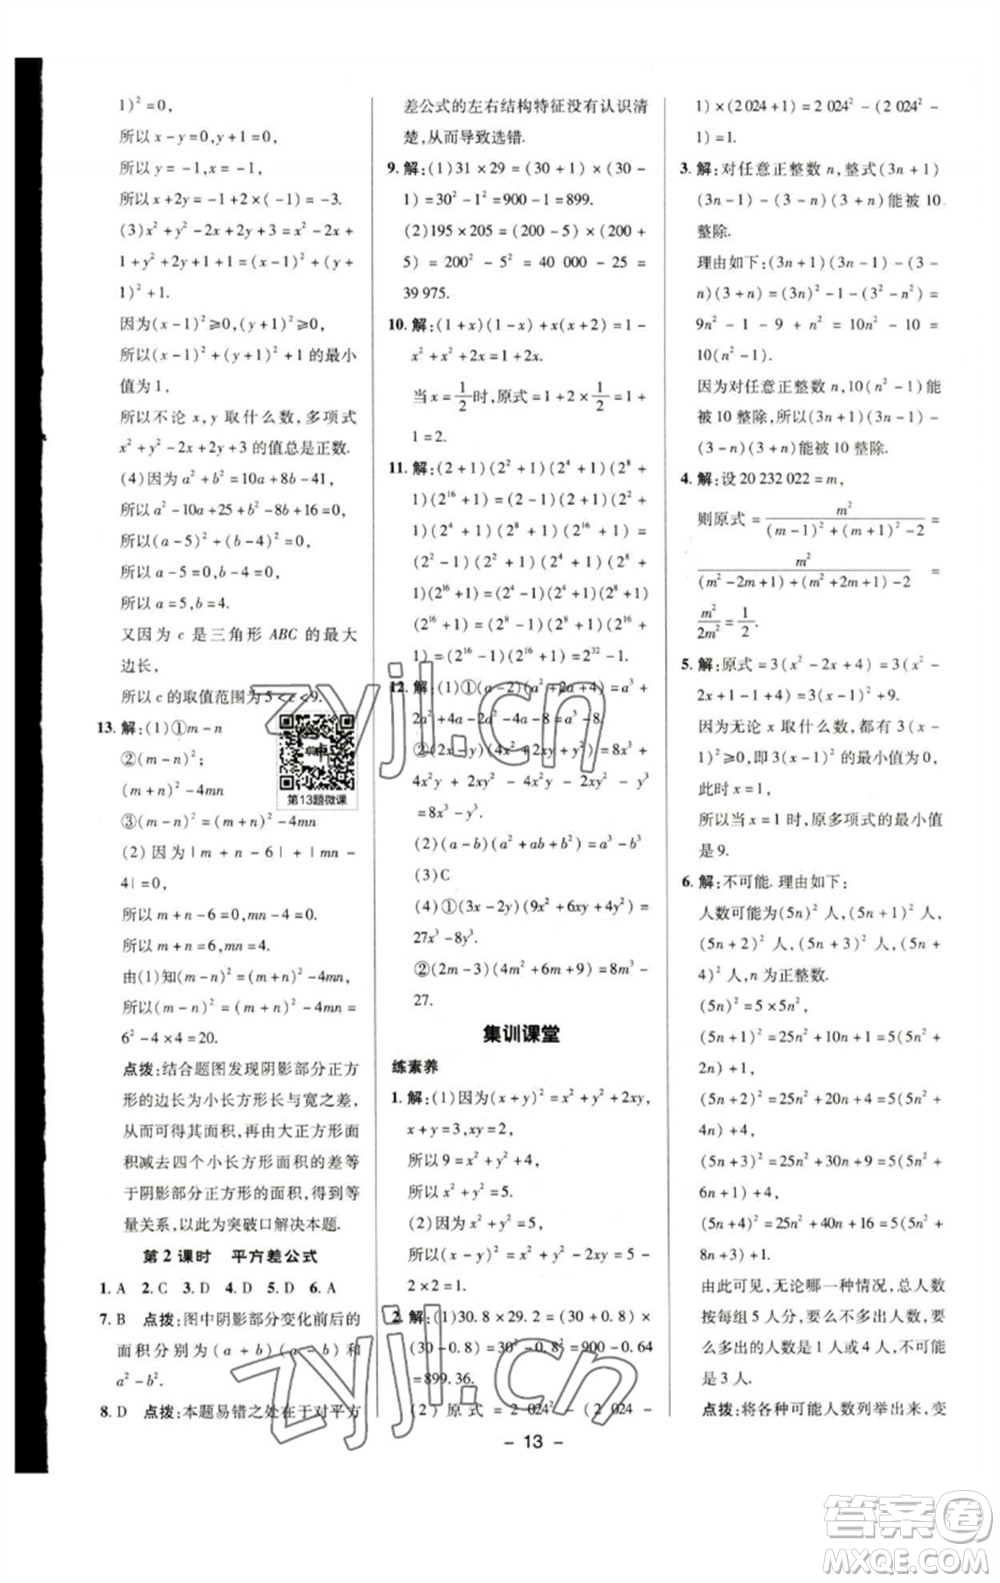 1)²=0,
所以 x-y=0,y+1=0,
所以 y=-1,x=-1,
所以 x+2y=-1+2×(-1)=-3.
(3)x²+y²-2x+2y+3=x²-2x+
1+y²+2y+1+1=(x-1)²+(y+
1)²+1.
因为(x-1)²≥0,(y+1)²≥0,
所以(x-1)²+(y+1)²+1 的最小
值为 1,
所以不论 x,y 取什么数,多项式
x²+y²-2x+2y+3 的值总是正数.
(4)因为 a²+b²=10a+8b-41,
所以 a²-10a+25+b²-8b+16=0,
所以(a-5)²+(b-4)²=0,
所以 a-5=0,b-4=0,
所以 a=5,b=4.
又因为 c 是三角形 ABC 的最大
边长,
所以 c 的取值范围为 5<c<9.
13. 解:(1)①m-n
②(m-n)²;
(m+n)²-4mn
③(m-n)²=(m+n)²-4mn
第13题微课
(2)因为|m+n-6|+|mn-
4|=0,
所以 m+n-6=0,mn-4=0,
所以 m+n=6,mn=4.
由(1)知(m-n)²=(m+n)²-4mn,
所以(m-n)²=(m+n)²-4mn=
6²-4×4=20.
点拨:结合题图发现阴影部分正方
形的边长为小长方形长与宽之差,
从而可得其面积,再由大正方形面
积减去四个小长方形面积的差等
于阴影部分正方形的面积,得到等
量关系,以此为突破口解决本题.
第 2 课时 平方差公式
1. A 2. C 3. D 4. D 5. D 6. A
7. B 点拨:图中阴影部分变化前后的
面积分别为(a+b)(a-b)和
a²-b².
8. D 点拨:本题易错之处在于对平方
差公式的左右结构特征没有认识清
楚,从而导致选错.
9. 解:(1)31×29=(30+1)×(30-
1)=30²-1²=900-1=899.
(2)195×205=(200-5)×(200+
5)=200²-5²=40 000-25=
39 975.
10. 解:(1+x)(1-x)+x(x+2)=1-
x²+x²+2x=1+2x.
当 x=1/2时,原式=1+2×1/2=1+
1=2.
11. 解:(2+1)(2²+1)(2⁴+1)(2⁸+
1)(2¹⁶+1)=(2-1)(2+1)(2²+
1)(2⁴+1)(2⁸+1)(2¹⁶+1)=
(2²-1)(2²+1)(2⁴+1)(2⁸+
1)(2¹⁶+1)=(2⁴-1)(2⁴+1)(2⁸+
1)(2¹⁶+1)=(2⁸-1)(2⁸+1)(2¹⁶+
1)=(2¹⁶-1)(2¹⁶+1)=2³²-1.
12. 解:(1)①(a-2)(a²+2a+4)=a³+
2a²+4a-2a²-4a-8=a³-8.
②(2x-y)(4x²+2xy+y²)=8x³+
4x²y+2xy²-4x²y-2xy²-y³
=8x³-y³.
(2)(a-b)(a²+ab+b²)=a³-b³
(3)C
(4)①(3x-2y)(9x²+6xy+4y²)=
27x³-8y³.
②(2m-3)(4m²+6m+9)=8m³-
27.
集训课堂
练素养
1. 解:(1)因为(x+y)²=x²+y²+2xy,
x+y=3,xy=2,
所以 9=x²+y²+4,
所以 x²+y²=5.
(2)因为 x²+y²=5,xy=2,
所以(x-y)²=x²+y²-2xy=5-
2×2=1.
2. 解:(1)30.8×29.2=(30+0.8)×
(30-0.8)=30²-0.8²=900-0.64
=899.36.
(2)原式=2 024²-(2 024-
1)×(2 024+1)=2 024²-(2 024²-
1)=1.
3. 解:对任意正整数 n,整式(3n+1)
(3n-1)-(3-n)(3+n)能被 10
整除.
理由如下:(3n+1)(3n-1)-(3-
n)(3+n)=(3n)²-1-(3²-n²)=
9n²-1-9+n²=10n²-10=
10(n²-1).
因为对任意正整数 n,10(n²-1)能
被 10 整除,所以(3n+1)(3n-1)-
(3-n)(3+n)能被 10 整除.
4. 解:设 20 232 022=m,
则原式=m²/((m-1)²+(m+1)²-2)=
m²/((m²-2m+1)+(m²+2m+1)-2)=
m²/2m²=1/2.
5. 解:原式=3(x²-2x+4)=3(x²-
2x+1-1+4)=3(x-1)²+9.
因为无论 x 取什么数,都有 3(x-
1)²≥0,即 3(x-1)²的最小值为0,
此时 x=1,
所以当 x=1 时,原多项式的最小值
是 9.
6. 解:不可能. 理由如下:
人数可能为(5n)²人,(5n+1)²人,
(5n+2)²人,(5n+3)²人,(5n+
4)²人,n 为正整数.
(5n)²=5×5n²,
(5n+1)²=25n²+10n+1=5(5n²+
2n)+1,
(5n+2)²=25n²+20n+4=5(5n²+
4n)+4,
(5n+3)²=25n²+30n+9=5(5n²+
6n+1)+4,
(5n+4)²=25n²+40n+16=5(5n²+
8n+3)+1.
由此可见,无论哪一种情况,总人数
按每组 5 人分,要么不多出人数,要
么多出的人数是 1 人或 4 人,不可能
是 3 人.
点拨:将各种可能人数列举出来,变
- 13 -
zyjl.cn
zyjl.cn
答案圈
MXQE.COM